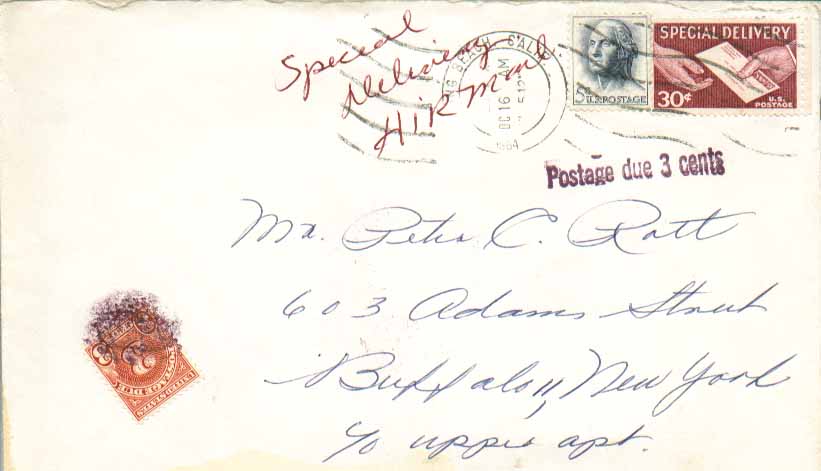 Special
Delivery
AIR Mail
LONG BEACH, CALIF.
OCT 16 AM
1964
5¢ U.S. POSTAGE
SPECIAL DELIVERY
30¢
U.S. POSTAGE
Postage due 3 cents
Mr. Peter C. Ratt
603 Adams Street
Buffalo 11, New York
c/o upper apt.
POSTAGE DUE
UNITED STATES
3